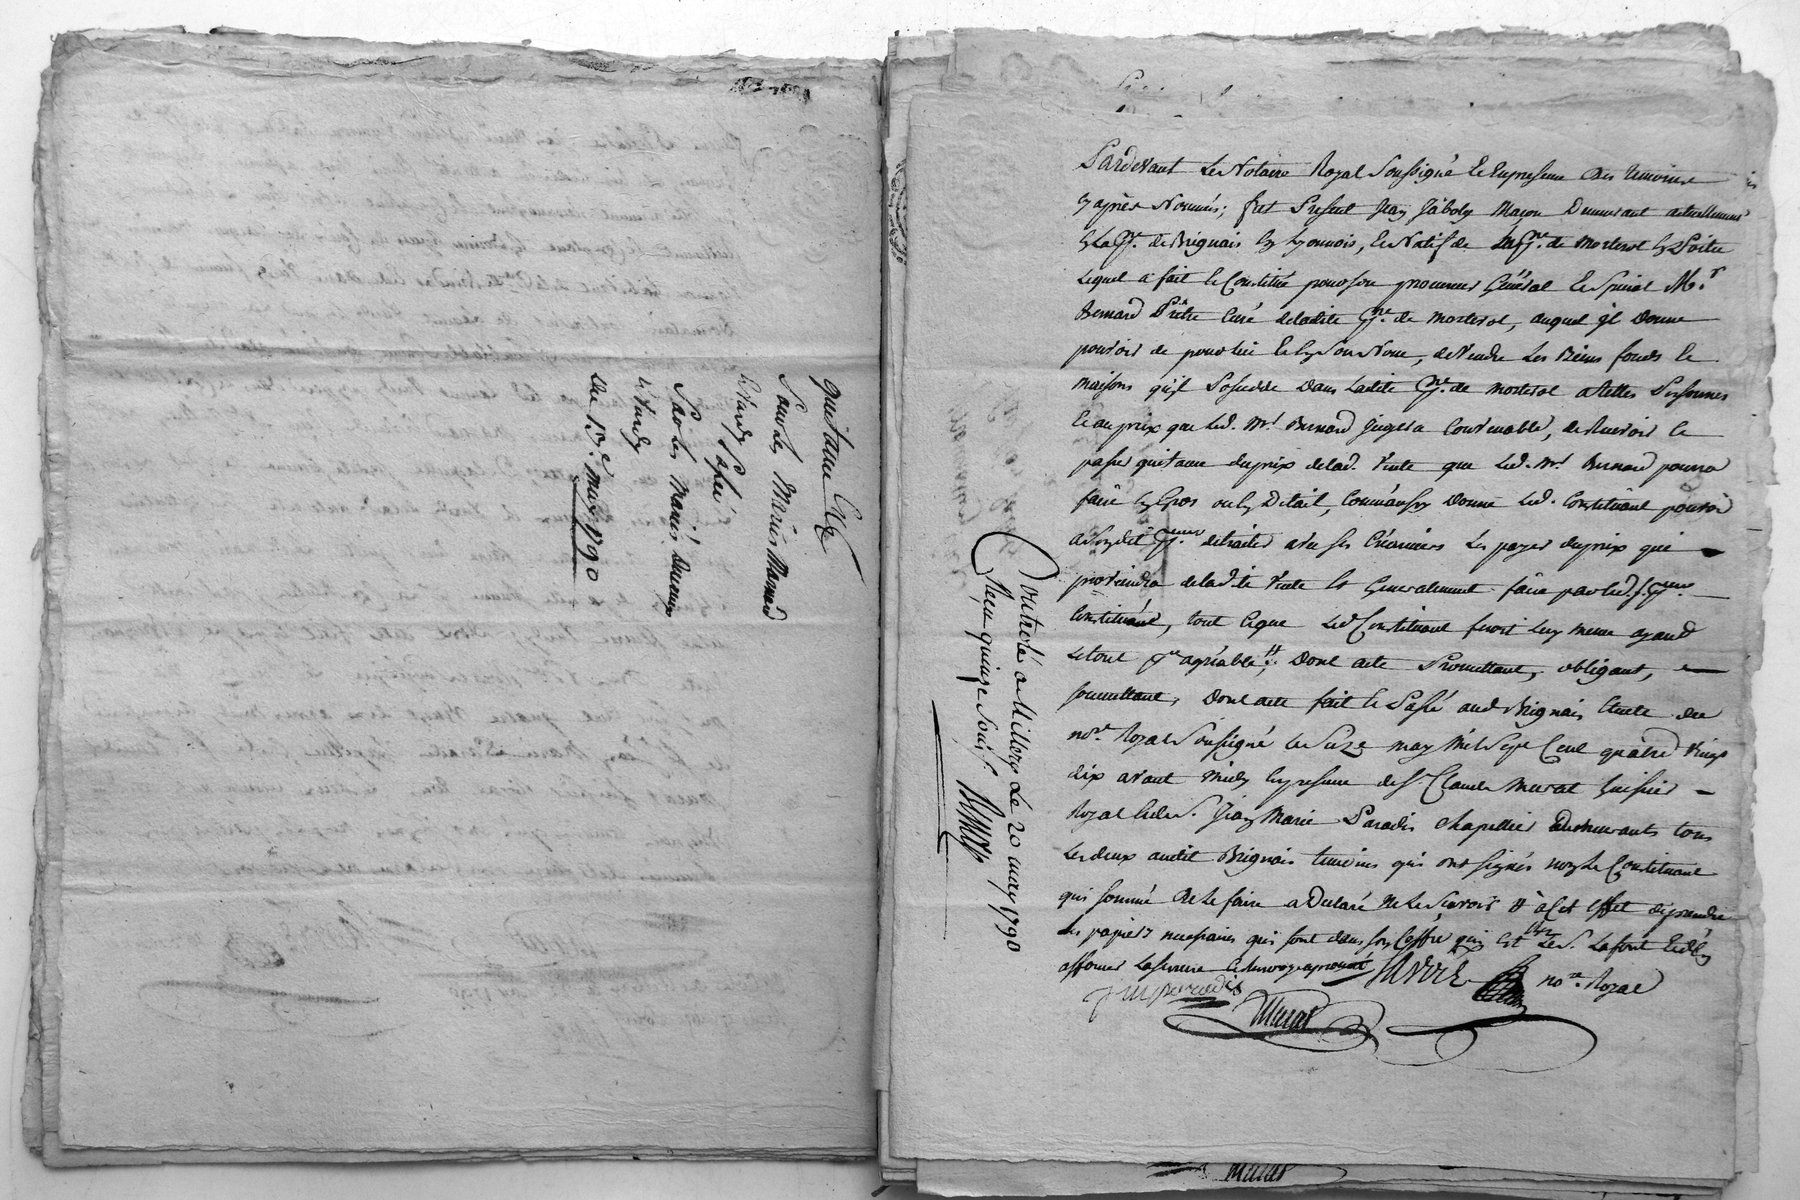 quittance &c
Pour les Mariés
Passée
Par les Mariés
Du 13e. may 1790
Pardevant Le Notaire Royal Soussigné & en presence des temoins
Cy après Nommés; fut Present Jean Jaboly Maçon Demeurant actuellement
en La Psse. de Brignais en Lyonnois, & Natif de la Psse. de morterol en Poitu
Lequel a fait & Constitué pour son procureur Général & Special Mr.
Bernard Prêtre Curé de ladite Psse. de morterol, auquel il donne
pouvoir de pour lui & en son Nom, de Vendre Les Biens fonds &
maisons qu'il Possedde dans Ladite Psse. de morterol a telles Personnes
& au prix que Led. Mr. Bernard Jugera Convenable, de Recevoir &
passer quittance du prix de lad. Vente que Led. Mr. Bernard pourra
faire en Gros ou en Detail, Comme aussy Donne Led. Constituant pouvoir
a sondit Preur. de traiter avec ses Créanciers Les payer du prix qui
proviendra de lad.te Vente & Generalement faire par led. Sr. Preur.
Constitué, tout ce que Led Constituant feroit Luy meme ayant
Le tout pr. agréable; Dont acte Promettant, obligant,
soumettant, Dont acte fait & Passé aud Brignais Etude du
nore. Royal Soussigné Le Seize may Mil Sept Cent quatre Vingt
dix avant midy en presence de Sr. Claude Murat huissier
Royal & de Sr. Jean Marie Paradis chapellier demeurants tous
Les deux audit Brignais temoins qui ont signés non Le Constituant
qui sommé de Le faire a Declaré ne Le Scavoir # à Cet effet de prendre
Les papiers necessaires qui sont dans son Coffre qui est chez Le Sr. Lafont & d'en
Laserrure
J M paradis
Murat
nore. Royal
Controlé a Millery Le 20 may 1790
Reçu quinze Sous
Murat